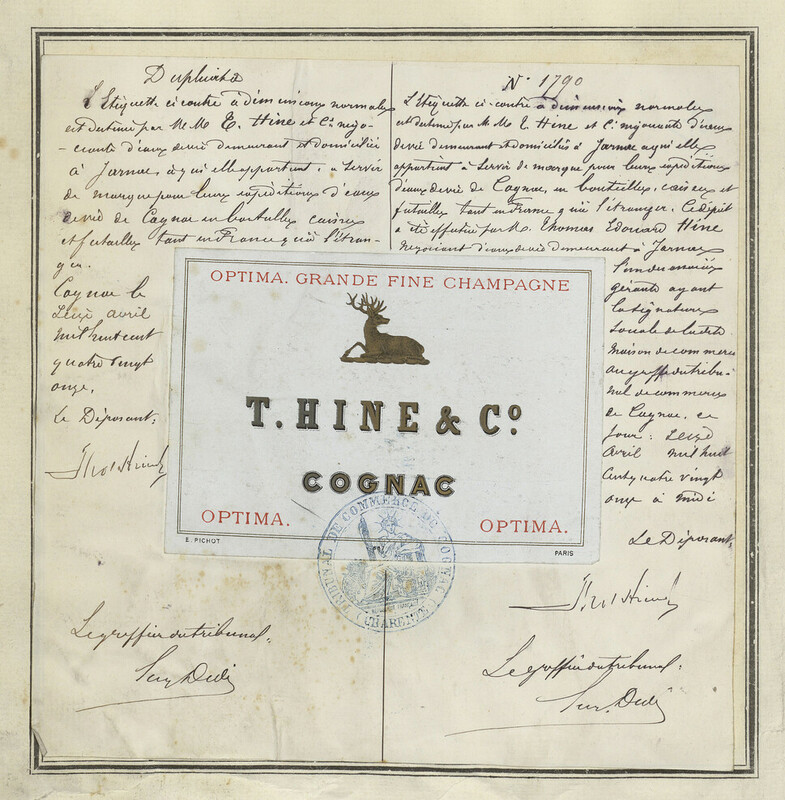 Duplicata
L'Etiquette ci-contre à dimensions normales
est destinée par M.M. E. Hine et Cie négo-
ciants d'eaux de vie demeurant et domiciliés
à Jarnac à qui elle appartient, à servir
de marque pour leurs expéditions d'eaux
de vie de Cognac en bouteilles caisses
et futailles tant en France qu'à l'étran-
ger.
Cognac le
seize avril
mil huit cent
quatre vingt
onze.
Le Déposant,
Le greffier du tribunal,
No 1790
L'Etiquette ci-contre à dimensions normales
est destinée par M.M. E. Hine et Cie négociants d'eaux
de vie demeurant et domiciliés à Jarnac à qui elle
appartient à servir de marque pour leurs expéditions
d'eaux de vie de Cognac, en bouteilles, caisses et
futailles tant en France qu'à l'étranger. Ce dépôt
a été effectué par M. Thomas Edouard Hine
négociant d'eaux de vie demeurant à Jarnac
l'un des associés
gérants ayant
la signature
sociale de ladite
maison de commerce
au greffe du tribu-
nal de commerce
de Cognac, ce
jour: seize
avril mil huit
cent quatre vingt
onze à midi
Le Déposant,
Le greffier du tribunal,
OPTIMA. GRANDE FINE CHAMPAGNE
T. HINE & Co.
COGNAC
OPTIMA. OPTIMA.
E. PICHOT PARIS
TRIBUNAL DE COMMERCE DE COGNAC
(CHARENTE)